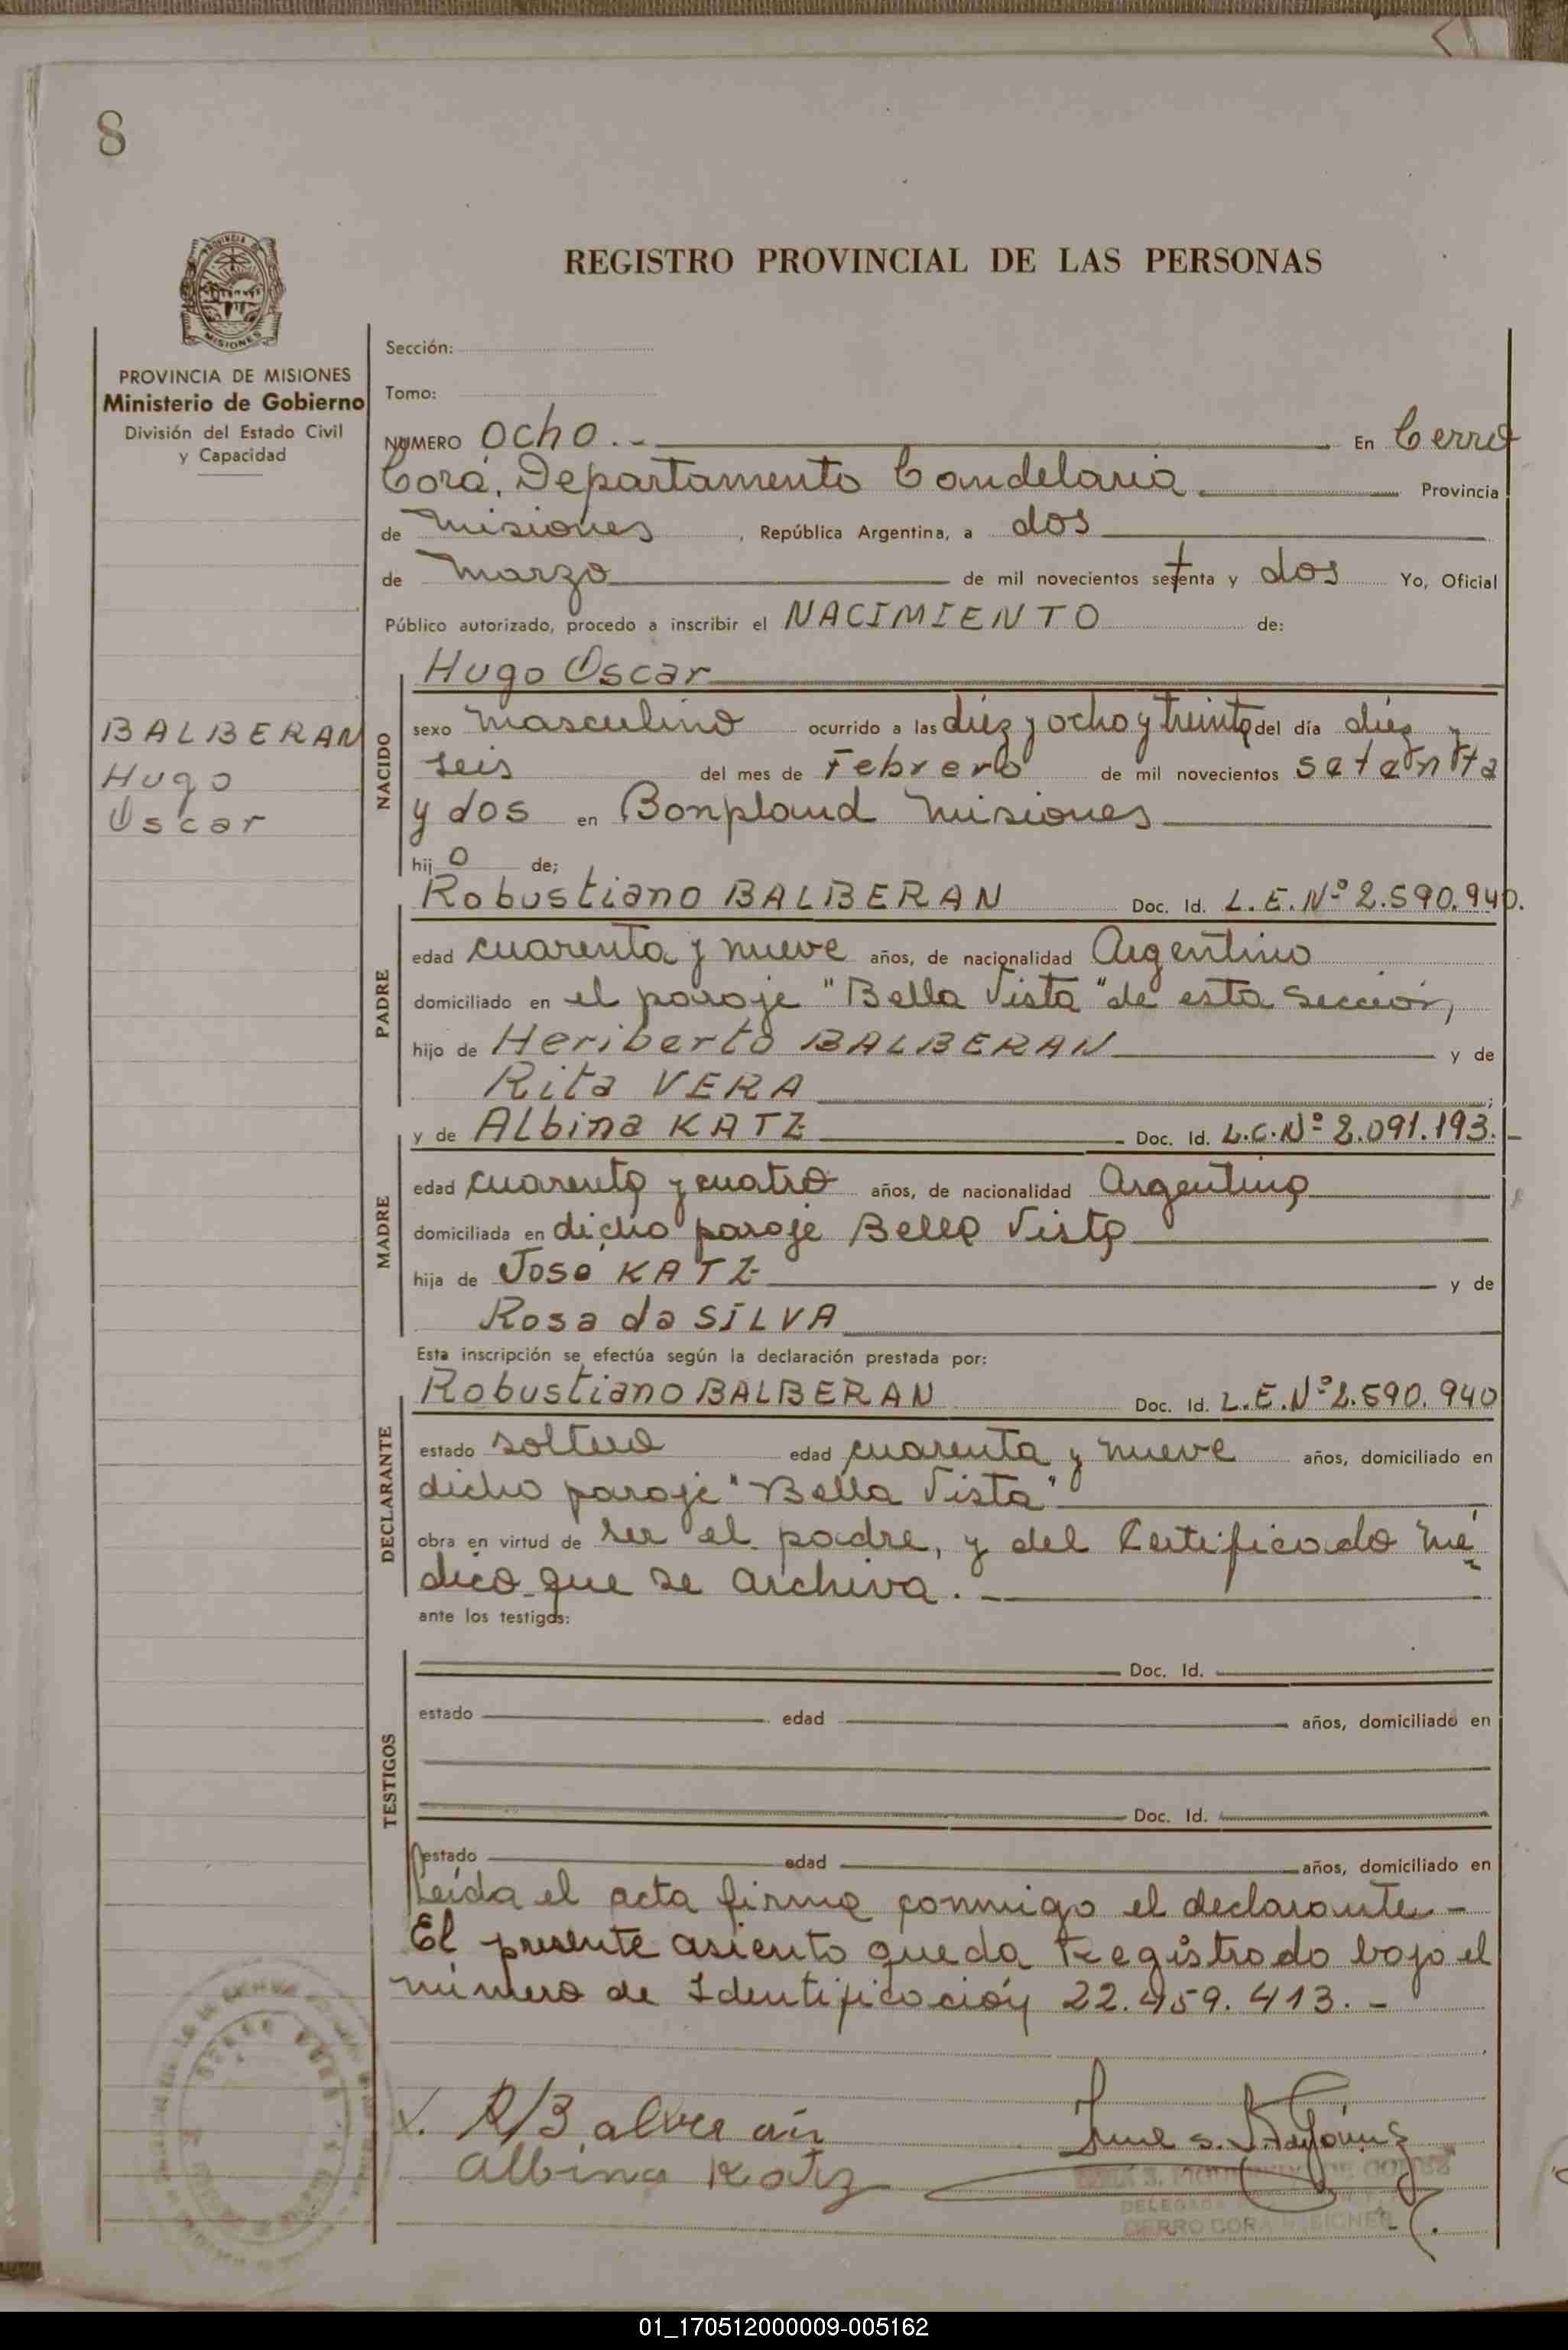 8
REGISTRO PROVINCIAL DE LAS PERSONAS
PROVINCIA DE
MISIONES
PROVINCIA DE MISIONES
Ministerio de Gobierno
División del Estado Civil
y Capacidad
Sección:
Tomo:
NUMERO Ocho.- En Cerro
Corá, Departamento Candelaria Provincia
de Misiones, República Argentina, a dos
de Marzo de mil novecientos setenta y dos Yo, Oficial
Público autorizado, procedo a inscribir el NACIMIENTO de:
BALBERAN
Hugo
Oscar
NACIDO
Hugo Oscar
sexo masculino ocurrido a las diéz y ocho y treinta del día diéz y
seis del mes de Febrero de mil novecientos setenta
y dos en Bonpland Misiones
hijo de;
PADRE
Robustiano BALBERAN Doc. Id. L.E.Nº 2.590.940.
edad cuarenta y nueve años, de nacionalidad Argentino
domiciliado en el paraje "Bella Vista" de esta Sección,
hijo de Heriberto BALBERAN y de
Rita VERA;
MADRE
y de Albina KATZ Doc. Id. L.C.Nº 2.091.193.-
edad cuarenta y cuatro años, de nacionalidad Argentina
domiciliada en dicho paraje Bella Vista
hija de José KATZ y de
Rosa da SILVA
Esta inscripción se efectúa según la declaración prestada por:
DECLARANTE
Robustiano BALBERAN Doc. Id. L.E.Nº 2.590.940
estado soltero edad cuarenta y nueve años, domiciliado en
dicho paraje "Bella Vista"
obra en virtud de ser el padre, y del Certificado Mé
dico que se archiva.-
ante los testigos:
TESTIGOS
Doc. Id.
estado edad años, domiciliado en
Doc. Id.
estado edad años, domiciliado en
Leída el acta firma conmigo el declarante-
El presente asiento queda Registrado bajo el
número de Identificación 22.459.413.-
X. R/Balveran
Albina Katz
DELEGADA
CERRO CORA MISIONES
01_170512000009-005162